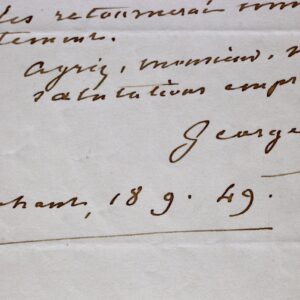 les retournerai
tement.
agréez, monsieur,
salutations empr
George
ohant, 18 9. 49.